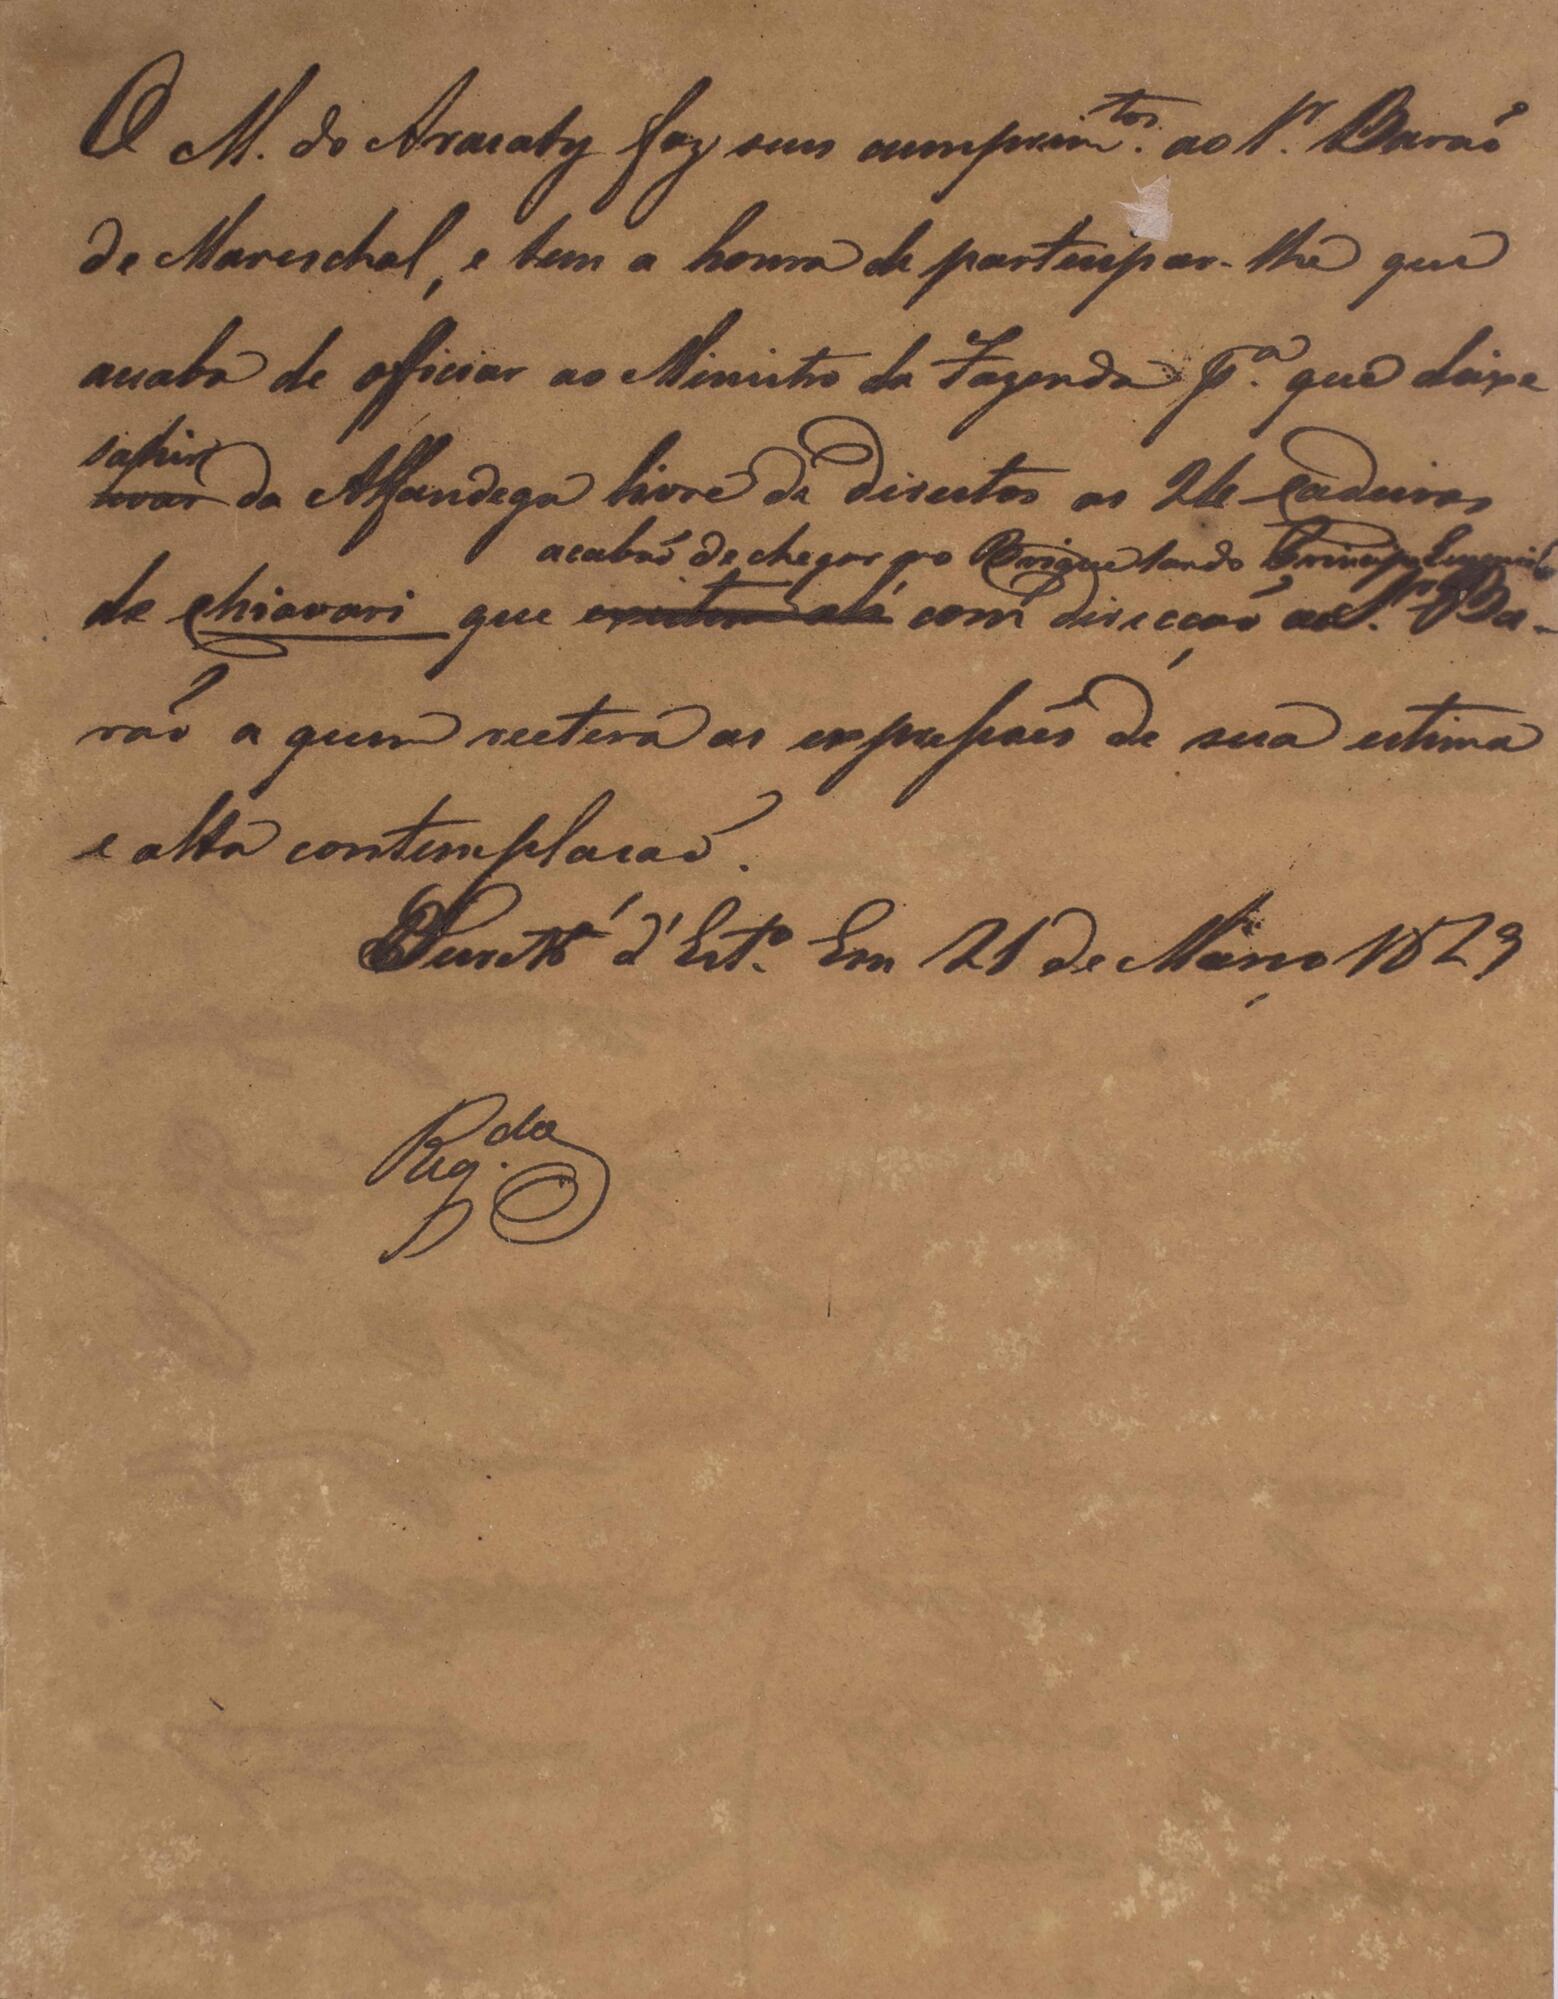 O M. do Aracaty faz seus cumprim.tos ao Sr. Barão
de Mareschal, e tem a honra de participar-lhe que
acaba de officiar ao Ministro da Fazenda pa. que deixe
sahir
tirar da Alfandega livre de direitos as 24 Cadeiras
acabão de chegar no Brigue Sardo Principe Eugenio
de Chiavari que com direcção ao Sr. Ba-
rão a quem reitera as expressões de sua estima
e alta contemplação.
Secretª d'Estº. Em 21 de Março 1829
Reg.da